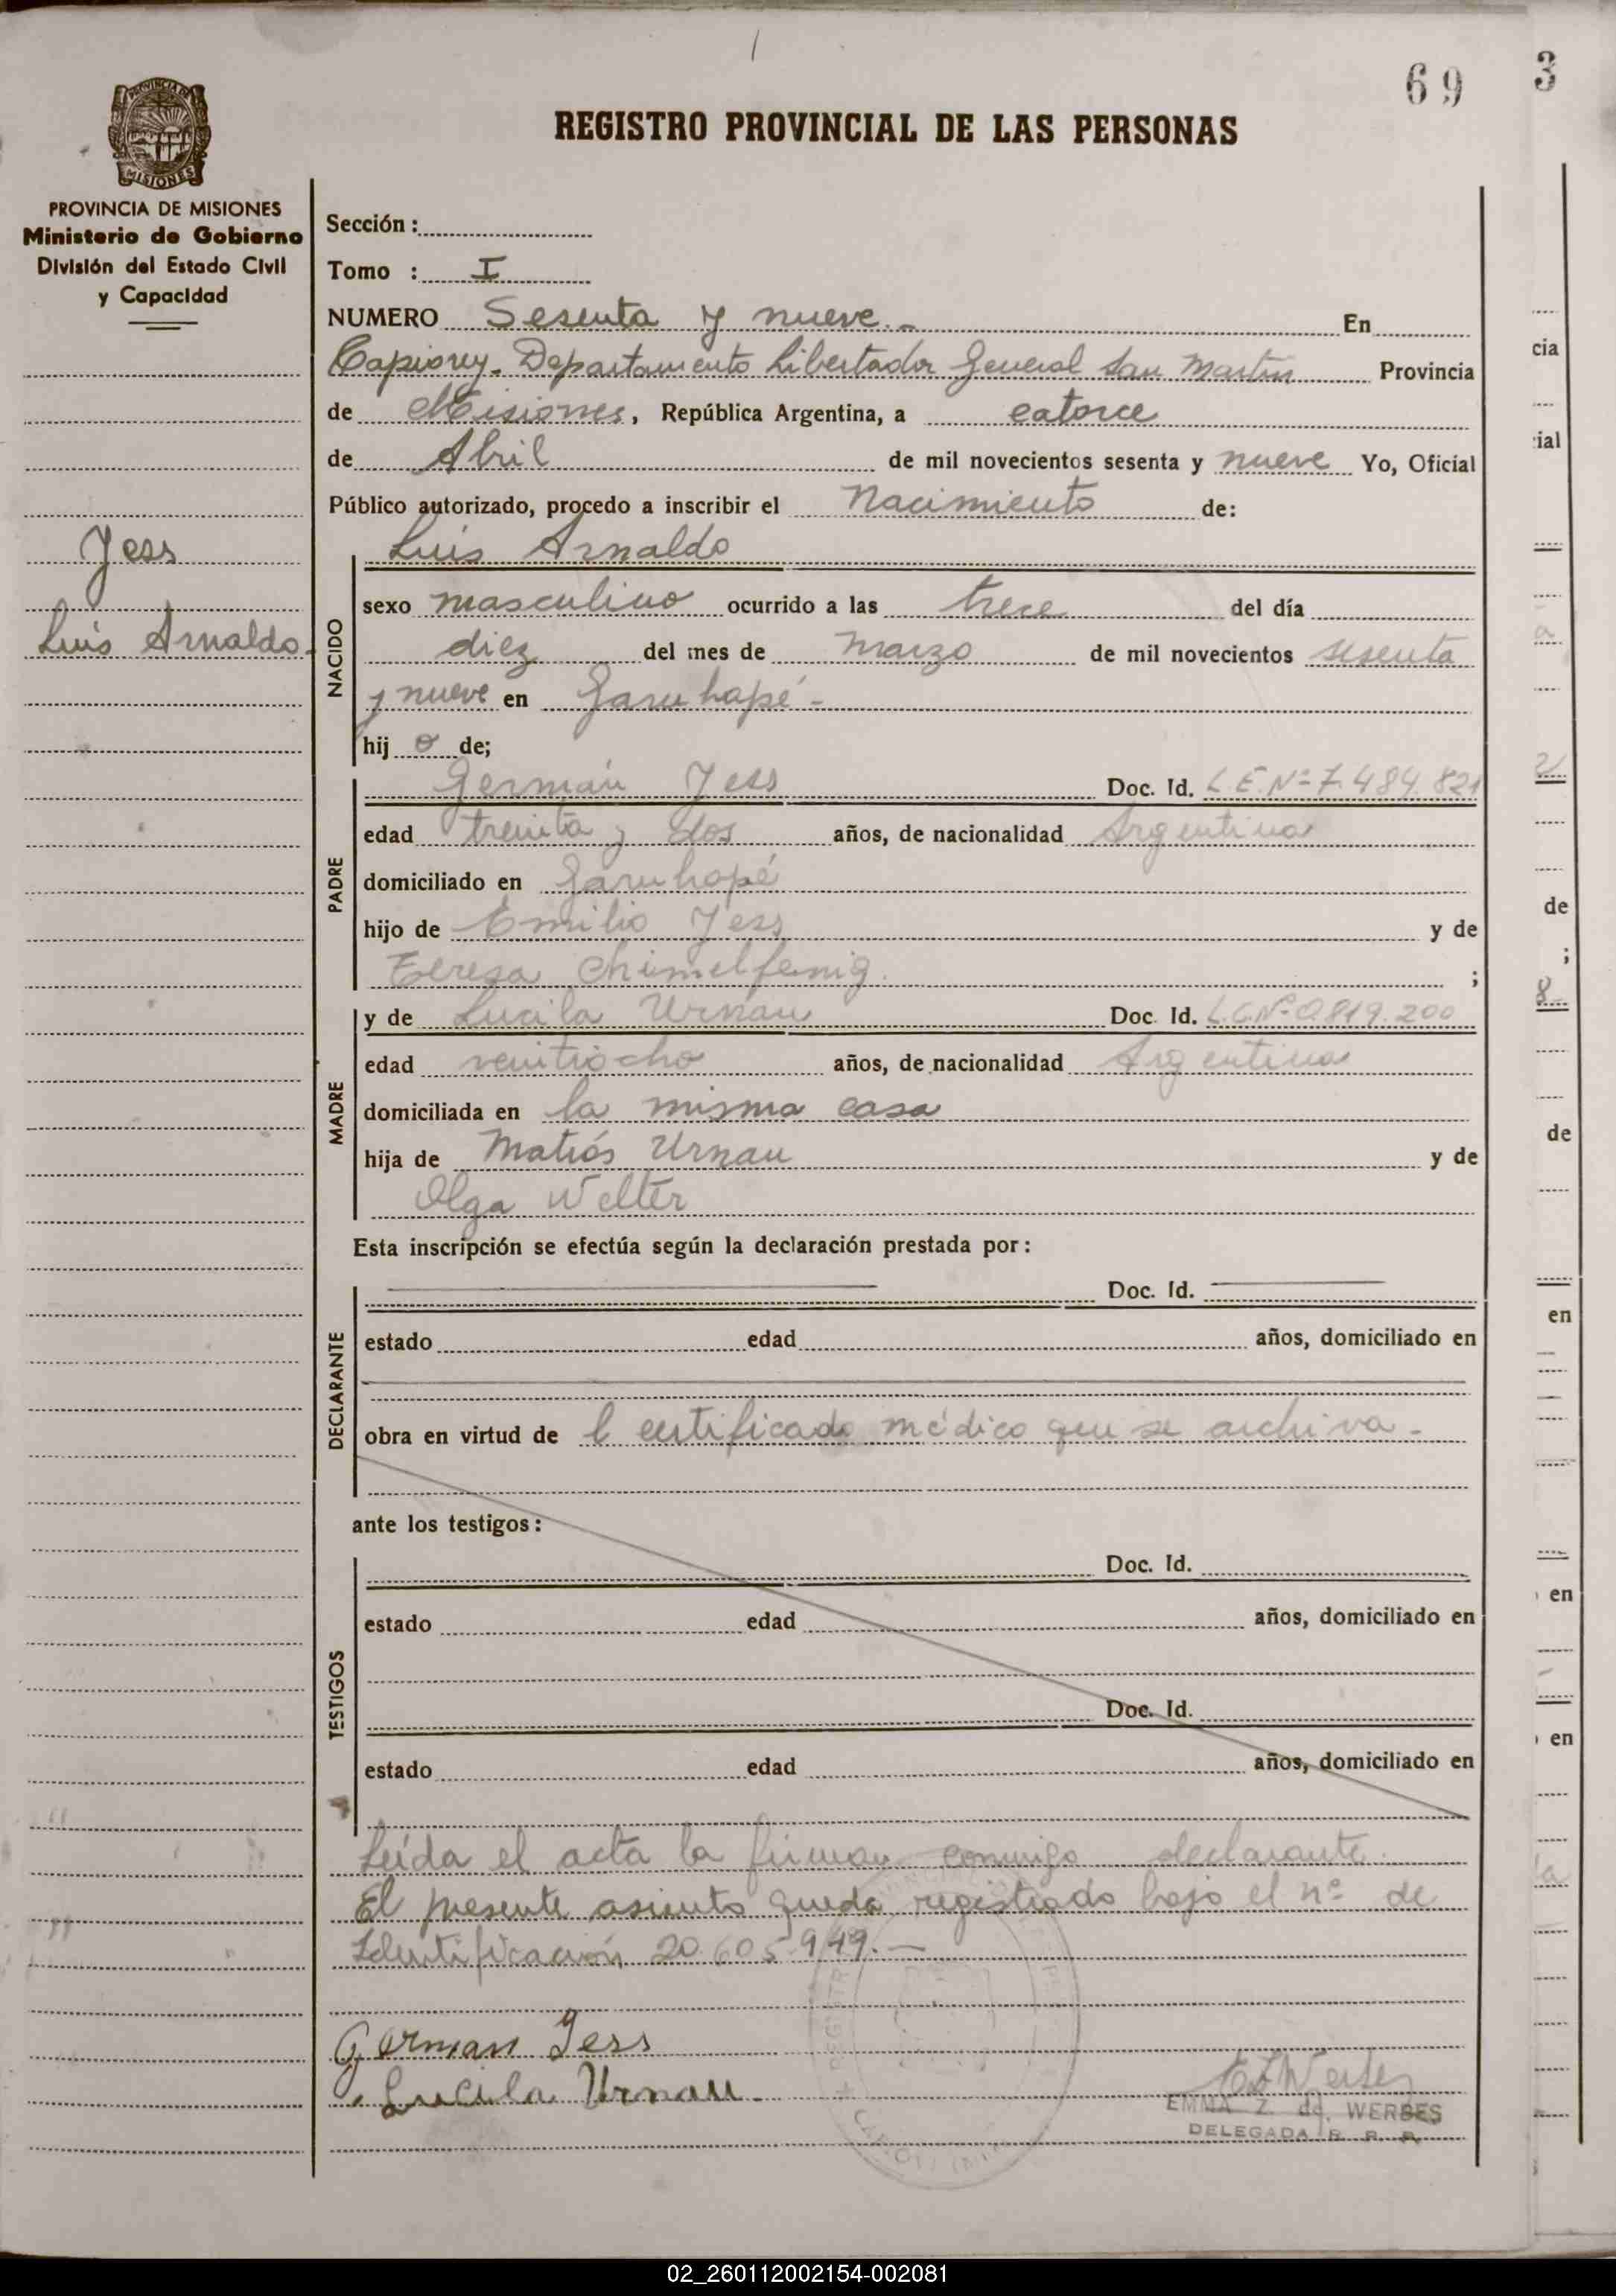 69
3
REGISTRO PROVINCIAL DE LAS PERSONAS
MISIONES
PROVINCIA DE MISIONES
Ministerio de Gobierno
División del Estado Civil
y Capacidad
Jess
Luis Arnaldo.
Sección :
Tomo : I
NUMERO Sesenta y nueve.- En
Capiovy. Departamento Libertador General San Martín Provincia
de Misiones, República Argentina, a catorce
de Abril de mil novecientos sesenta y nueve Yo, Oficial
Público autorizado, procedo a inscribir el Nacimiento de:
NACIDO
Luis Arnaldo
sexo masculino ocurrido a las trece del día
diez del mes de marzo de mil novecientos sesenta
y nueve en Garuhapé -
hij o de;
PADRE
Germán Jess Doc. Id. L.E.Nº 7.484.821
edad treinta y dos años, de nacionalidad Argentina
domiciliado en Garuhapé
hijo de Emilio Jess y de
Teresa Chimelfenig. ;
MADRE
y de Lucila Urnau Doc. Id. L.C.Nº 0.819.200
edad veintiocho años, de nacionalidad Argentina
domiciliada en la misma casa
hija de Matías Urnau y de
Olga Welter
Esta inscripción se efectúa según la declaración prestada por :
DECLARANTE
Doc. Id.
estado edad años, domiciliado en
obra en virtud de l certificado médico que se archiva -
ante los testigos :
TESTIGOS
Doc. Id.
estado edad años, domiciliado en
Doc. Id.
estado edad años, domiciliado en
Leída el acta la firman conmigo declarante.
El presente asiento queda registrado bajo el nº de
Identificación 20.605.949. —
German Jess
Lucila Urnau.
EZWerbes
EMMA Z. de. WERBES
DELEGADA R. P. P.
cia
cial
de
;
8
de
en
en
en
02_260112002154-002081